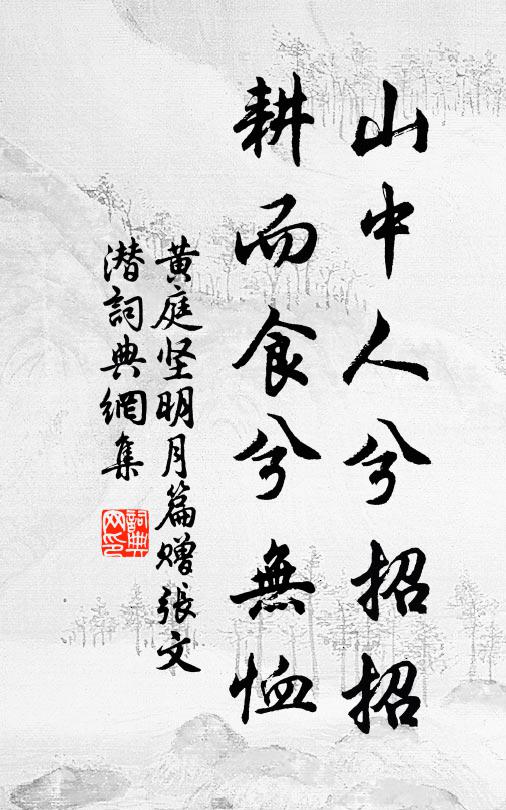 山中人兮招招
耕而食兮無恤
黄庭坚明月篇赠張文
潜詞典網集
詞典
网印